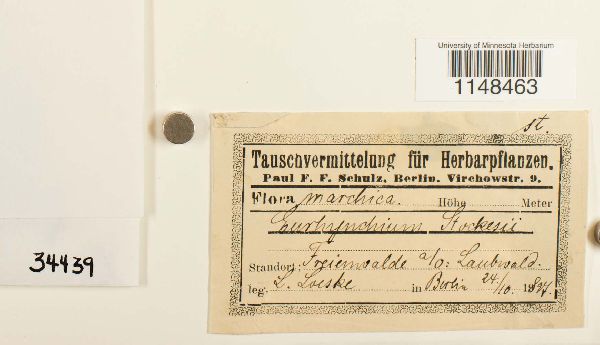 University of Minnesota Herbarium
1148463
st.
Tauschvermittelung für Herbarpflanzen.
Paul F. F. Schulz, Berlin. Virchowstr. 9.
Flora marchica. Höhe Meter
Eurhynchium Stokesii
Standort: Freienwalde a/O: Laubwald.
leg. L. Loeske in Berlin 24/10. 1897.
34439